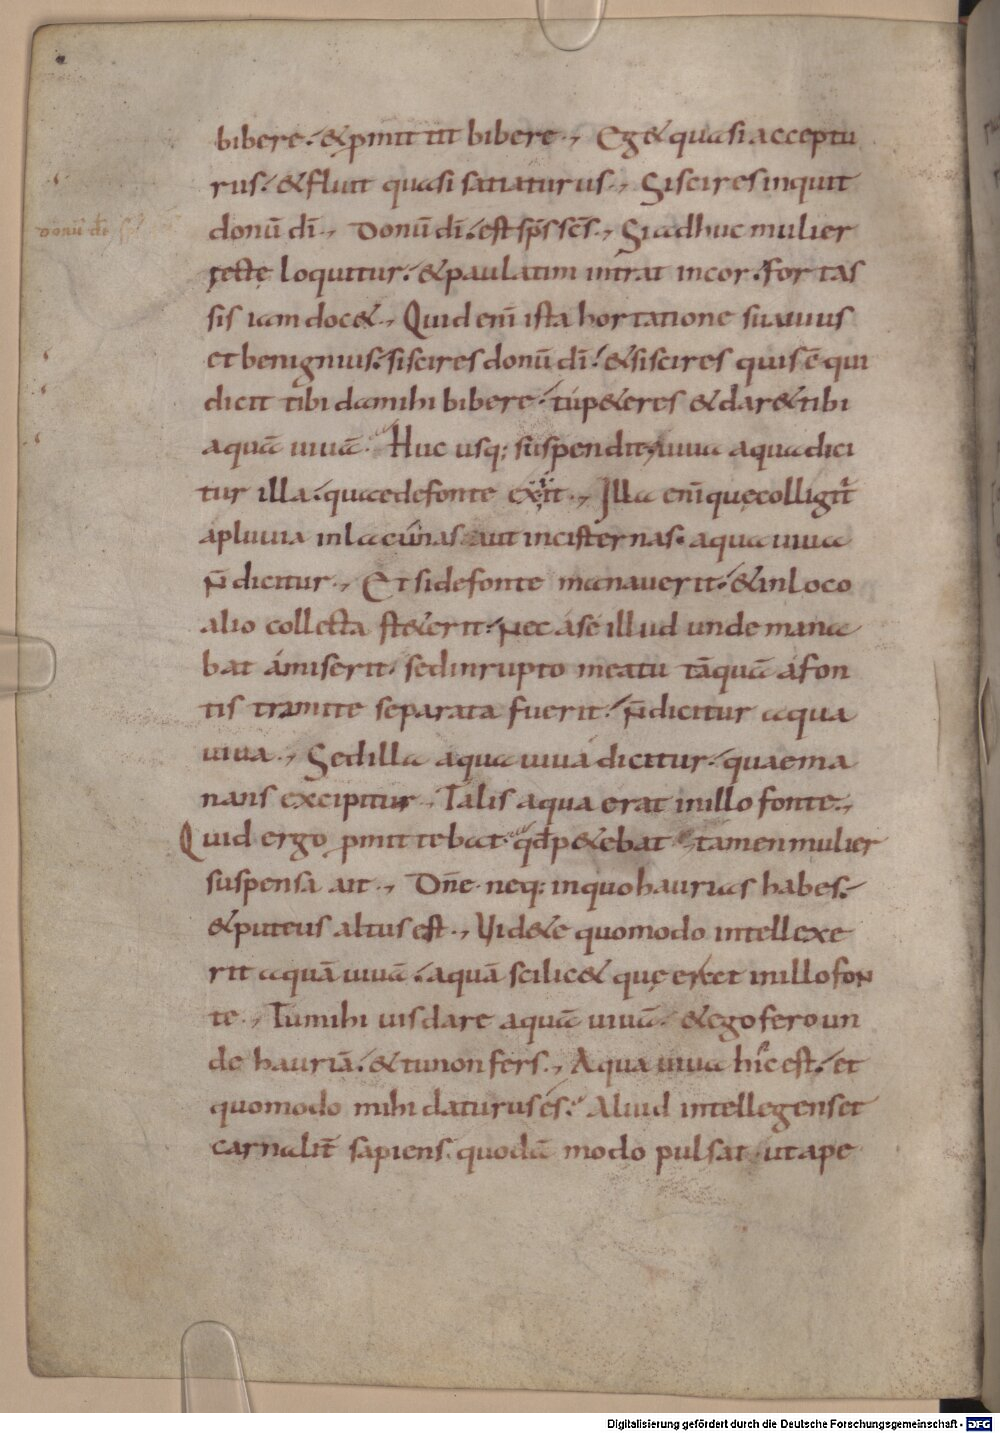 bibere. & ꝓmittit bibere., Eg& quasi acceptu
rus. & fluit quasi satiaturus., Si scires inquit
donū dī., Donū dī. est sp̄s sc̄s., Si adhuc mulier
donū dī
tęctę loquitur. & paulatim intrat in cor. for tas
sis iam doc&., Quid enī ista hortatione suauius
et benignius. si scires donū dī. & si scires quis ē qui
dicit tibi da mihi bibere. tu p&eres & dar& tibi
aquā uiuā. Huc usq; suspendit., uiua aqua dici
tur illa. quae de fonte exiit., Illa enī quę colligit̄
a pluuia in lacunas aut in cisternas. aqua uiua
n̄ dicitur., Et si de fonte manauerit. & in loco
alio collecta st&erit. nec ásé illud unde mana
bat ámiserit. sed inrupto meatu tāquā á fon
tis tramite separata fuerit. n̄ dicitur aqua
uiua., Sed illa aqua uiua dicitur. quae ma
nans excipitur., Talis aqua erat in illo fonte.,
Quid ergo ꝓmittebat. qđ p&ebat tamen mulier
suspensa ait., Dn̄e neq; in quo haurias habes.
& puteus altus est., Uid&e quomodo intellexe
rit aquā uiuā. aquā scilic& quę erat in illo fon
te., Tu mihi uis dare aquā uiuā. & ego fero un
de hauriā. & tu non fers., Aqua uiua hic est. et
quomodo mihi daturus és. Aliud intellegens et
carnalit̄ sapiens. quodā modo pulsat. ut ape